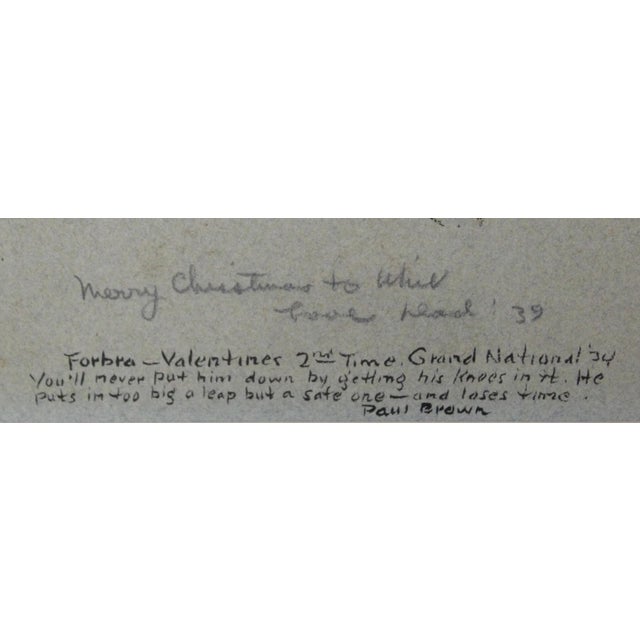 Merry Christmas to Whit
Love Dad '39
Forbra — Valentines 2nd Time. Grand National '34
You'll never put him down by getting his knees in it. He
puts in too big a leap but a safe one — and loses time.
Paul Brown